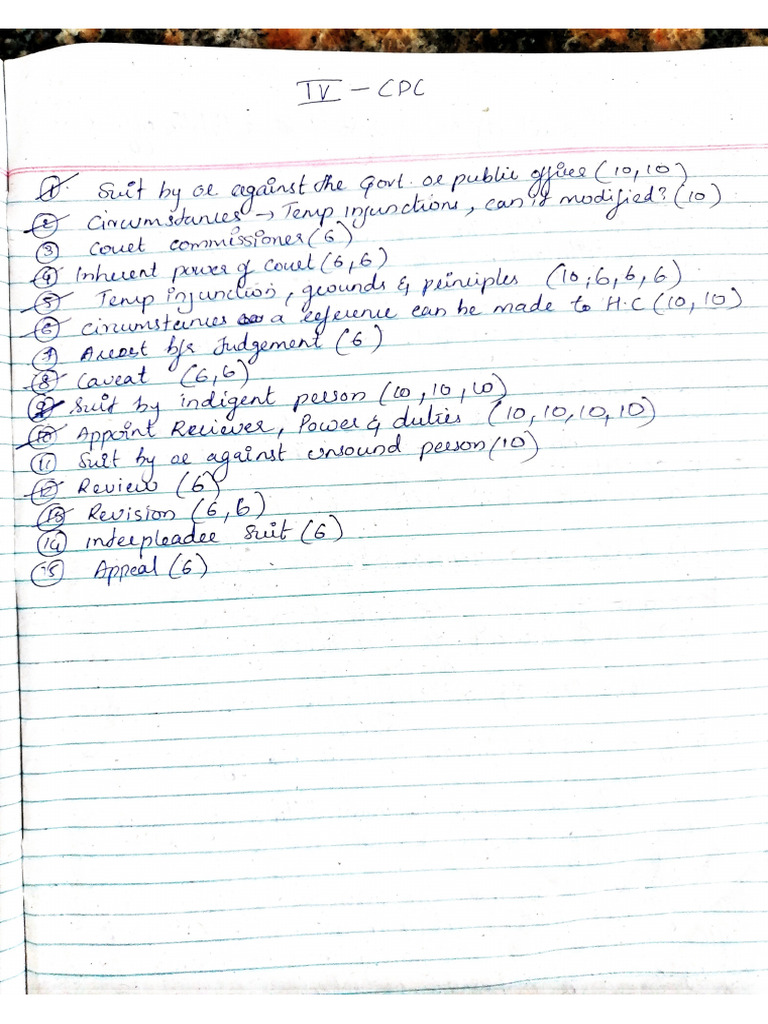 IV - CPC
1. Suit by or against the Govt. or public officer (10,10)
2 Circumstances → Temp injunctions, can it modified? (10)
3 Court commissioner (6)
4 Inherent power of Court (6,6)
5 Temp injunction, grounds & principles (10,6,6,6)
6 Circumstances a reference can be made to H.C (10,10)
7 Arrest b/f Judgement (6)
8 Caveat (6,6)
9 Suit by indigent person (10,10,10)
10 Appoint Reciever, Power & duties (10,10,10,10)
11 Suit by or against unsound person (10)
12 Review (6)
13 Revision (6,6)
14 interpleader Suit (6)
15 Appeal (6)